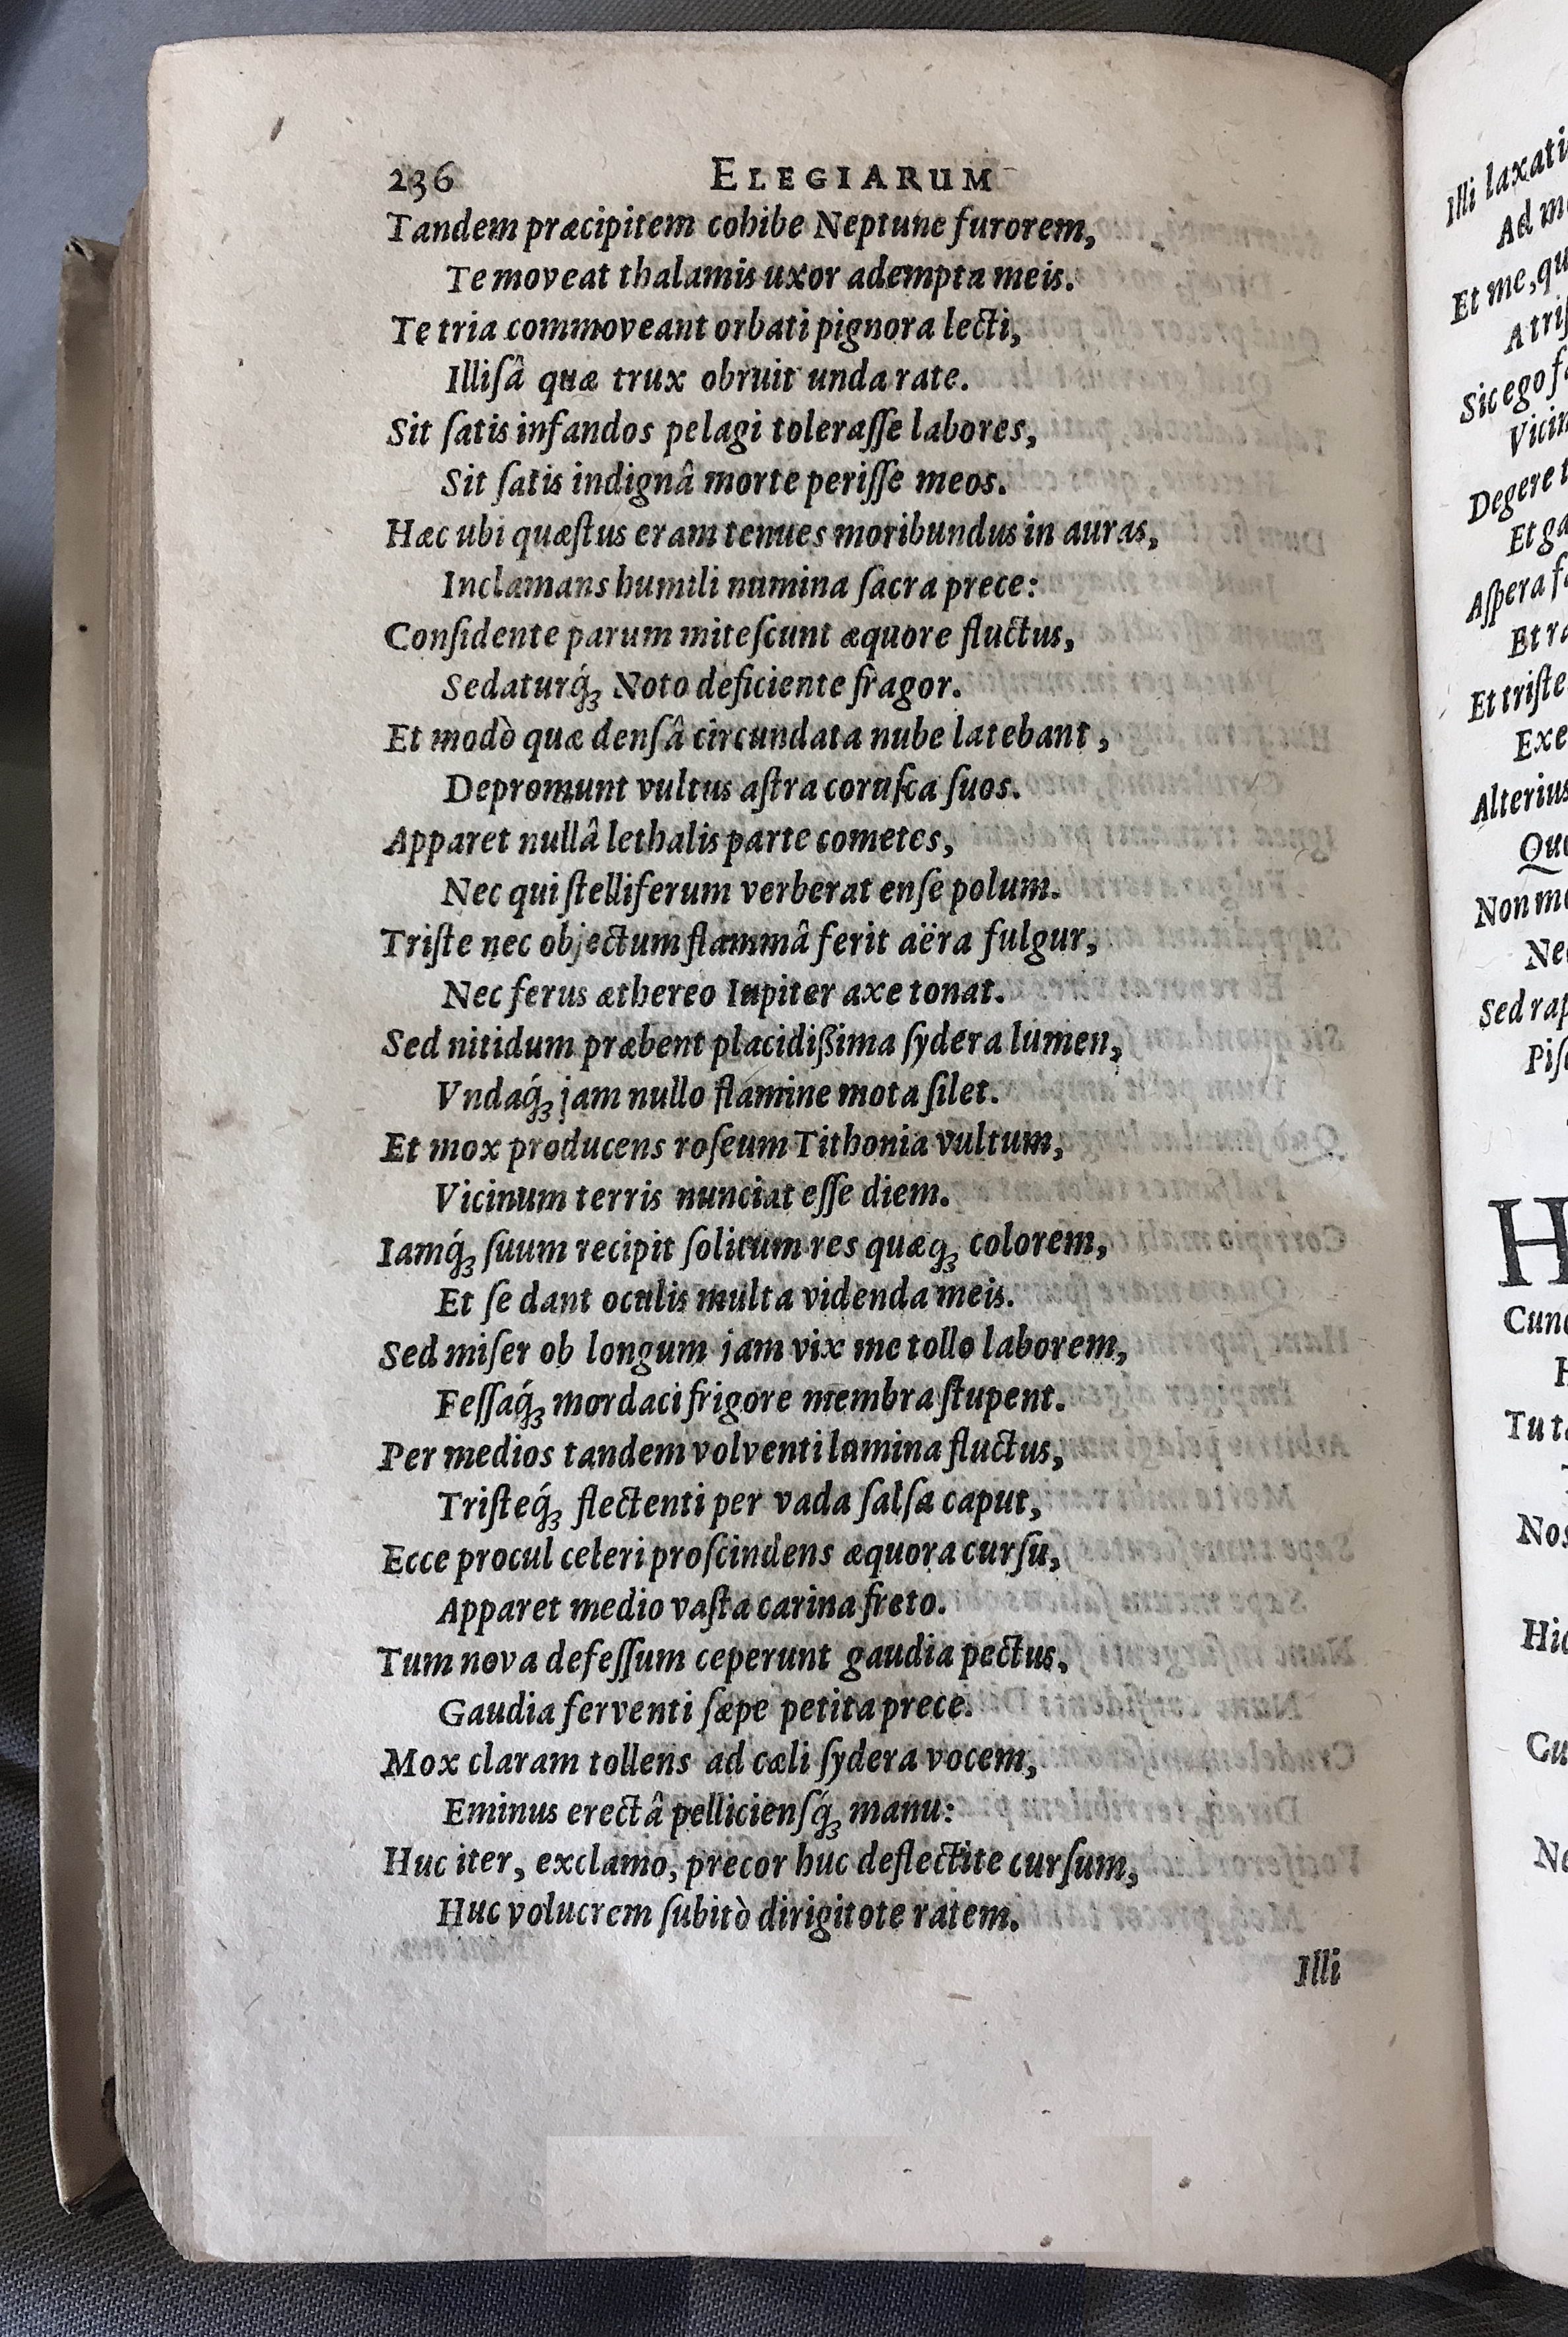 236 ELEGIARUM
Tandem præcipitem cohibe Neptune furorem,
Te moveat thalamis uxor adempta meis.
Te tria commoveant orbati pignora lecti,
Illiſâ quæ trux obruit unda rate.
Sit ſatis infandos pelagi toleraſſe labores,
Sit ſatis indignâ morte periſſe meos.
Hæc ubi quæſtus eram tenues moribundus in auras,
Inclamans humili numina ſacra prece:
Conſidente parum miteſcunt æquore fluctus,
Sedaturq́ꝫ Noto deficiente fragor.
Et modò quæ denſâ circundata nube latebant,
Depromunt vultus aſtra coruſca ſuos.
Apparet nullâ lethalis parte cometes,
Nec qui ſtelliferum verberat enſe polum.
Triſte nec objectum flammâ ferit aëra fulgur,
Nec ferus æthereo Iupiter axe tonat.
Sed nitidum præbent placidißima ſydera lumen,
Vndaq́ꝫ jam nullo flamine mota ſilet.
Et mox producens roſeum Tithonia vultum,
Vicinum terris nunciat eſſe diem.
Iamq́ꝫ ſuum recipit ſolitum res quæqꝫ colorem,
Et ſe dant oculis multa videnda meis.
Sed miſer ob longum jam vix me tollo laborem,
Feſſaq́ꝫ mordaci frigore membra ſtupent.
Per medios tandem volventi lumina fluctus,
Triſteq́ꝫ flectenti per vada ſalſa caput,
Ecce procul celeri proſcindens æquora curſu,
Apparet medio vaſta carina freto.
Tum nova defeſſum ceperunt gaudia pectus,
Gaudia ferventi ſæpe petita prece.
Mox claram tollens ad cæli ſydera vocem,
Eminus erectâ pelliciensq́ꝫ manu:
Huc iter, exclamo, precor huc deflectite curſum,
Huc volucrem ſubitò dirigitote ratem.
Illi
Illi
Ad
Et me,
Sic ego
Degere
Et
Aſpera
Et
Et triſte
Alterius
Non
Sed
H